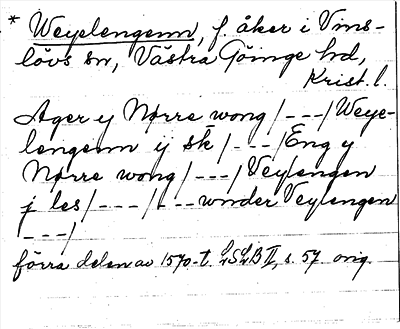 * Weyelengenn, f. åker i Vins-
lövs sn, Västra Göinge hd,
Krist. l.
Ager y Nørre wong /---/ Weye-
lengenn ij sk /---/ Eng y
Nørre wong /---/ Veylengen
j les /---/--- wnder Veylengen
---/
förra delen av 1570-t. LSLB II, s. 57 orig.